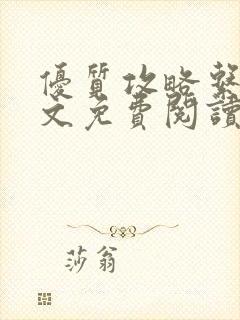 優質攻略繫
文免費閱讀
莎翁